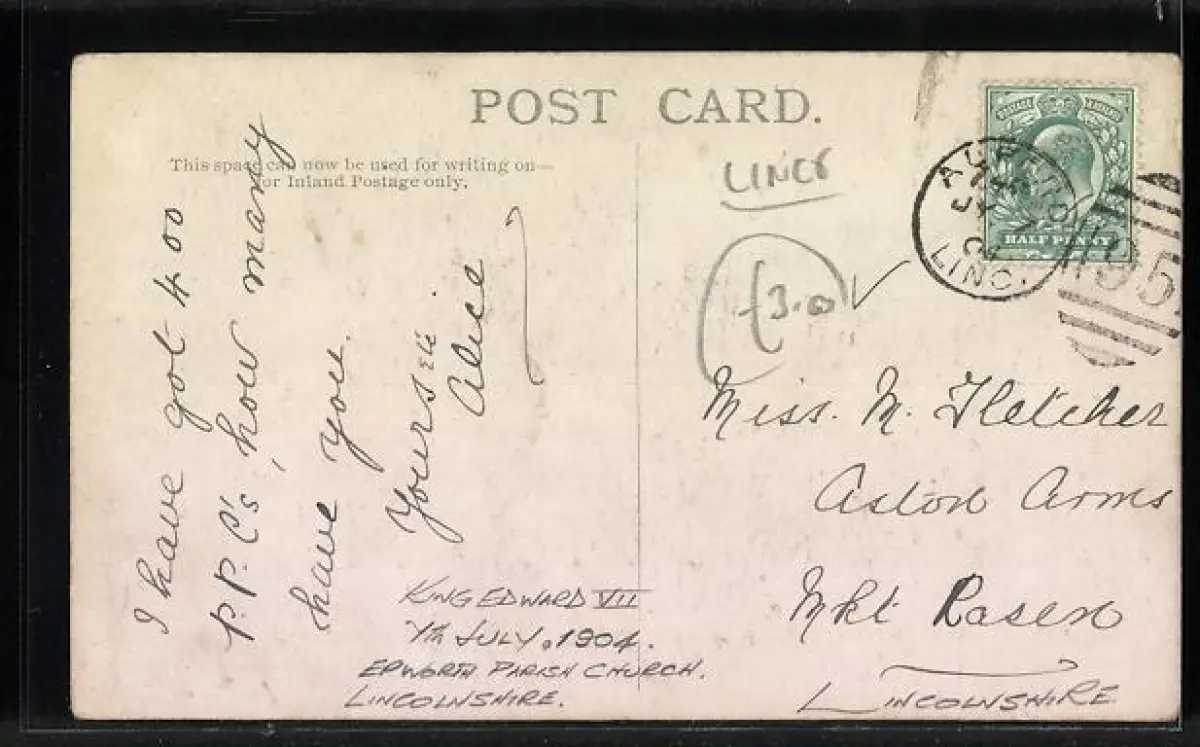 POST CARD.
This space can now be used for writing on—
for Inland Postage only.
I have got 400
P.P.C's, how many
have you.
Yours etc
Alice
KING EDWARD VII
7th JULY. 1904.
EPWORTH PARISH CHURCH.
LINCOLNSHIRE.
LINCS
£3.00
HALF PENNY
ALFORD
LINC.
95
Miss. M. Fletcher
Aston Arms
Mkt Rasen
LINCOLNSHIRE.